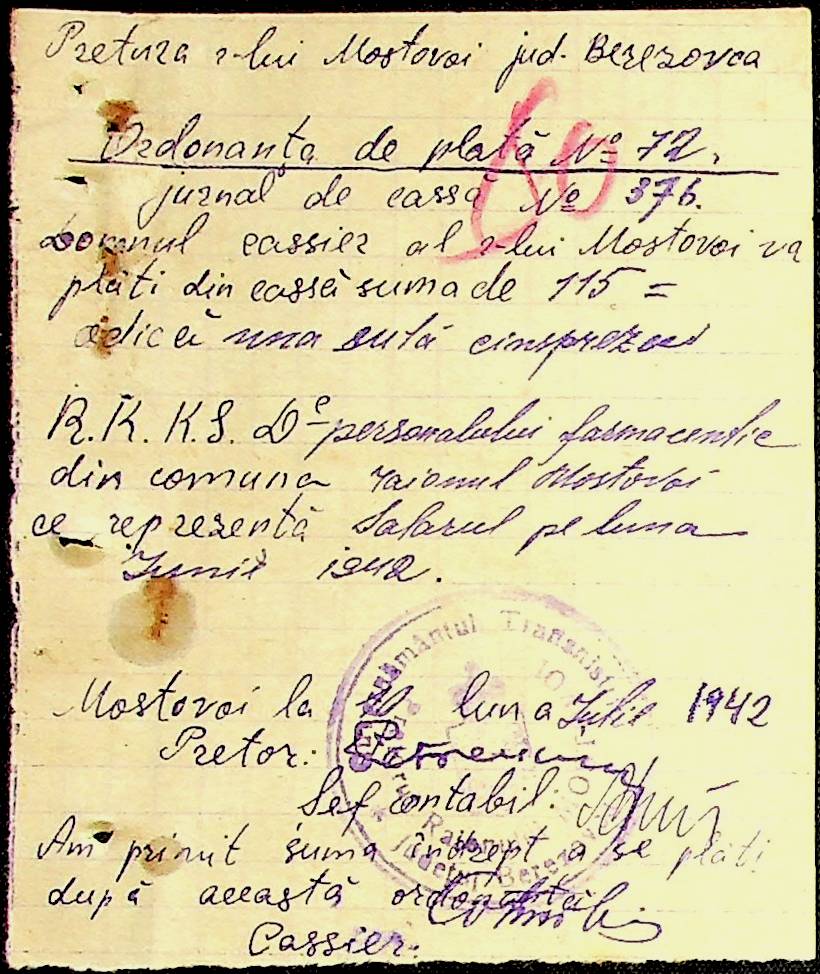 Pretura r-lui Mostovoi jud. Berezovca
Ordonanța de plată No 72.
jurnal de cassă No 376.
Domnul cassier al r-lui Mostovoi va
plăti din cassă suma de 115 =
adică una sută cinsprezeci
R.K.K.S. De personalului farmaceutic
din comuna raionul Mostovoi
ce reprezentă Salarul pe luna
Iunie 1942.
Mostovoi la luna Iulie 1942
Pretor:
Șef contabil:
Am primit suma îndrept a se plăti
după această ordonanță
Cassier:
Raionul
Județul Berez